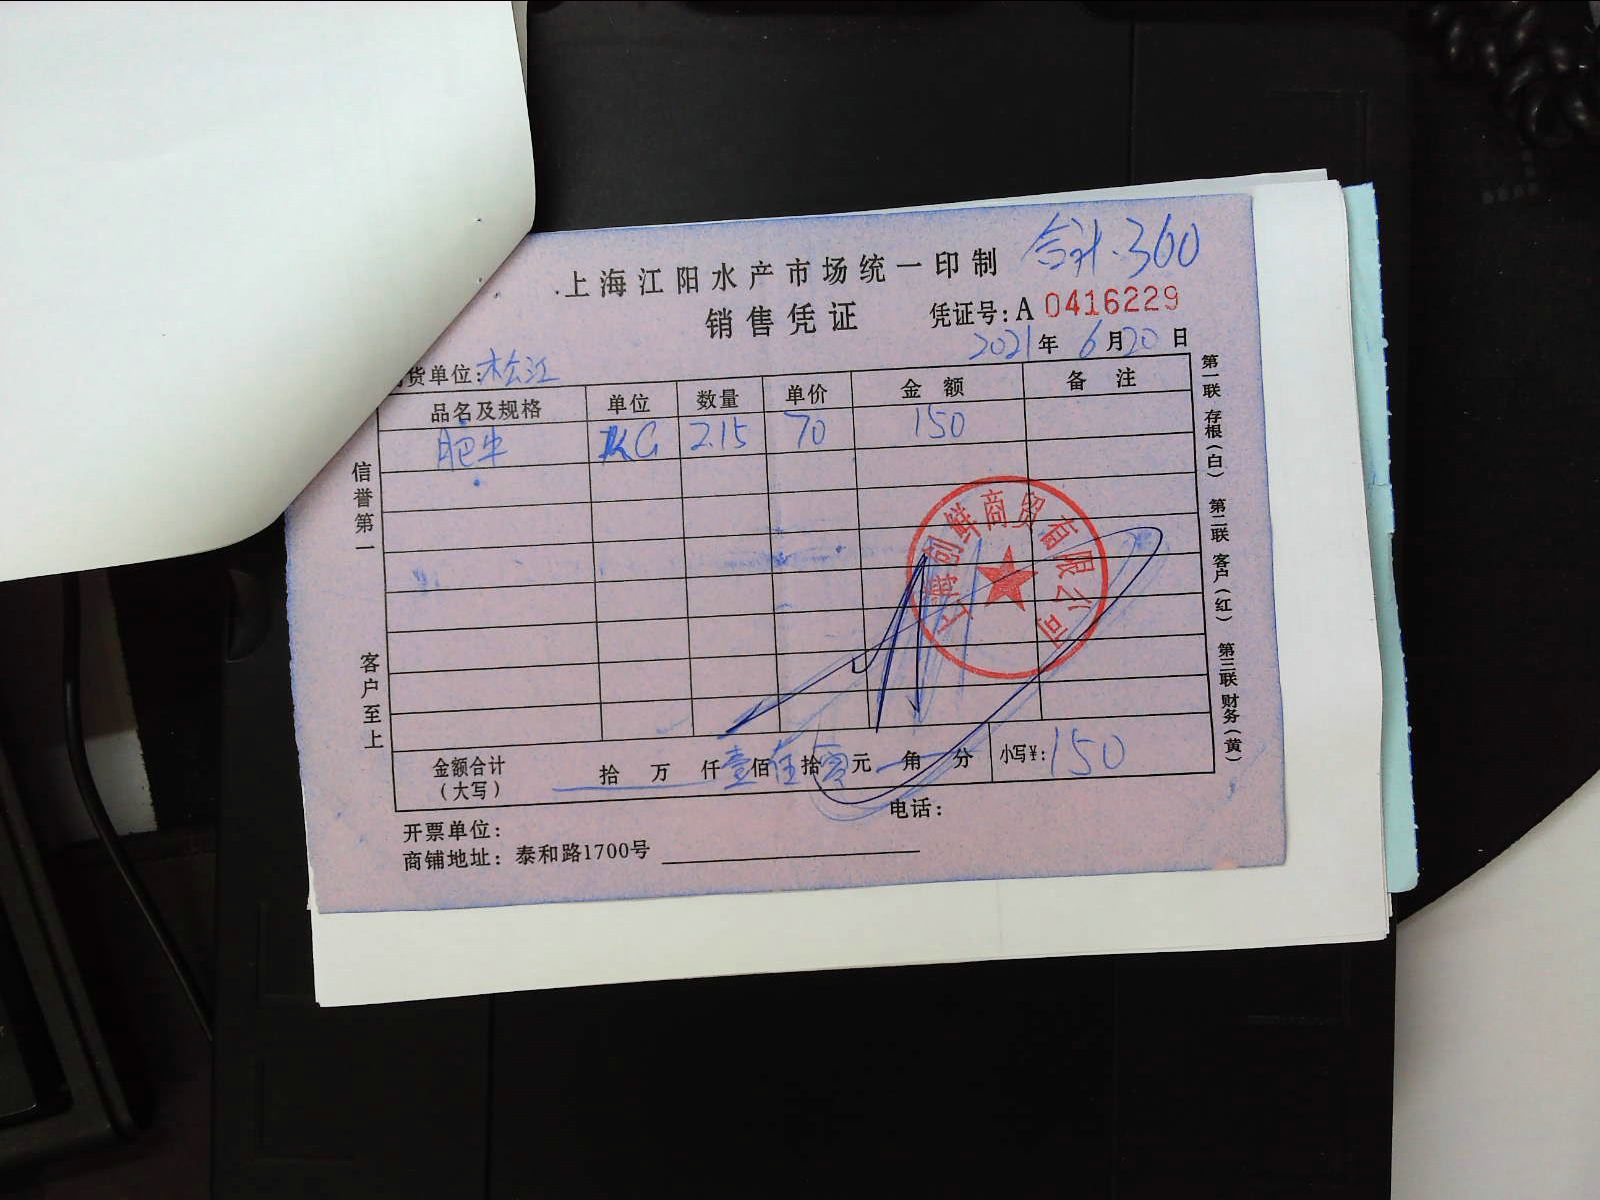 合计.360
上海江阳水产市场统一印制
销售凭证 凭证号:A 0416229
2021年 6月20日
货单位:松江
品名及规格 单位 数量 单价 金额 备注
肥牛 KG 2.15 70 150
信誉第一 客户至上
上海创鲜商贸有限公司
第一联 存根(白) 第二联 客户(红) 第三联 财务(黄)
金额合计(大写) 拾 万 仟 壹佰 伍拾 零元 角 分 小写¥:150
开票单位: 电话:
商铺地址: 泰和路1700号